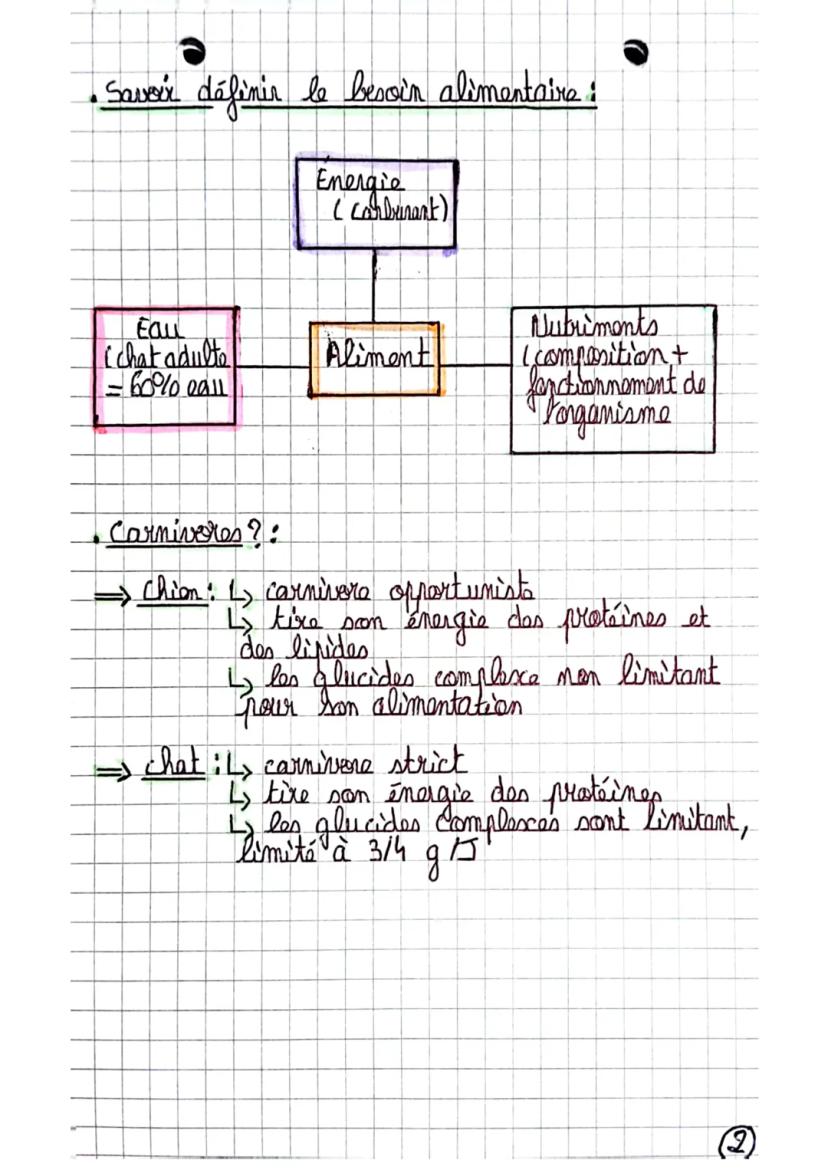 . Savoir définir le besoin alimentaire :
Énergie
( Carburant)
Eau
(chat adulte
= 60% eau
Aliment
Nutriments
(composition +
fonctionnement de
l'organisme
. Carnivores ? :
⇒ Chien : ↳ carnivore opportuniste
↳ tire son énergie des protéines et
des lipides
↳ les glucides complexe non limitant
pour son alimentation
⇒ chat : ↳ carnivore strict
↳ tire son énergie des protéines
↳ les glucides complexes sont limitant,
limité à 3/4 g /J
(2)